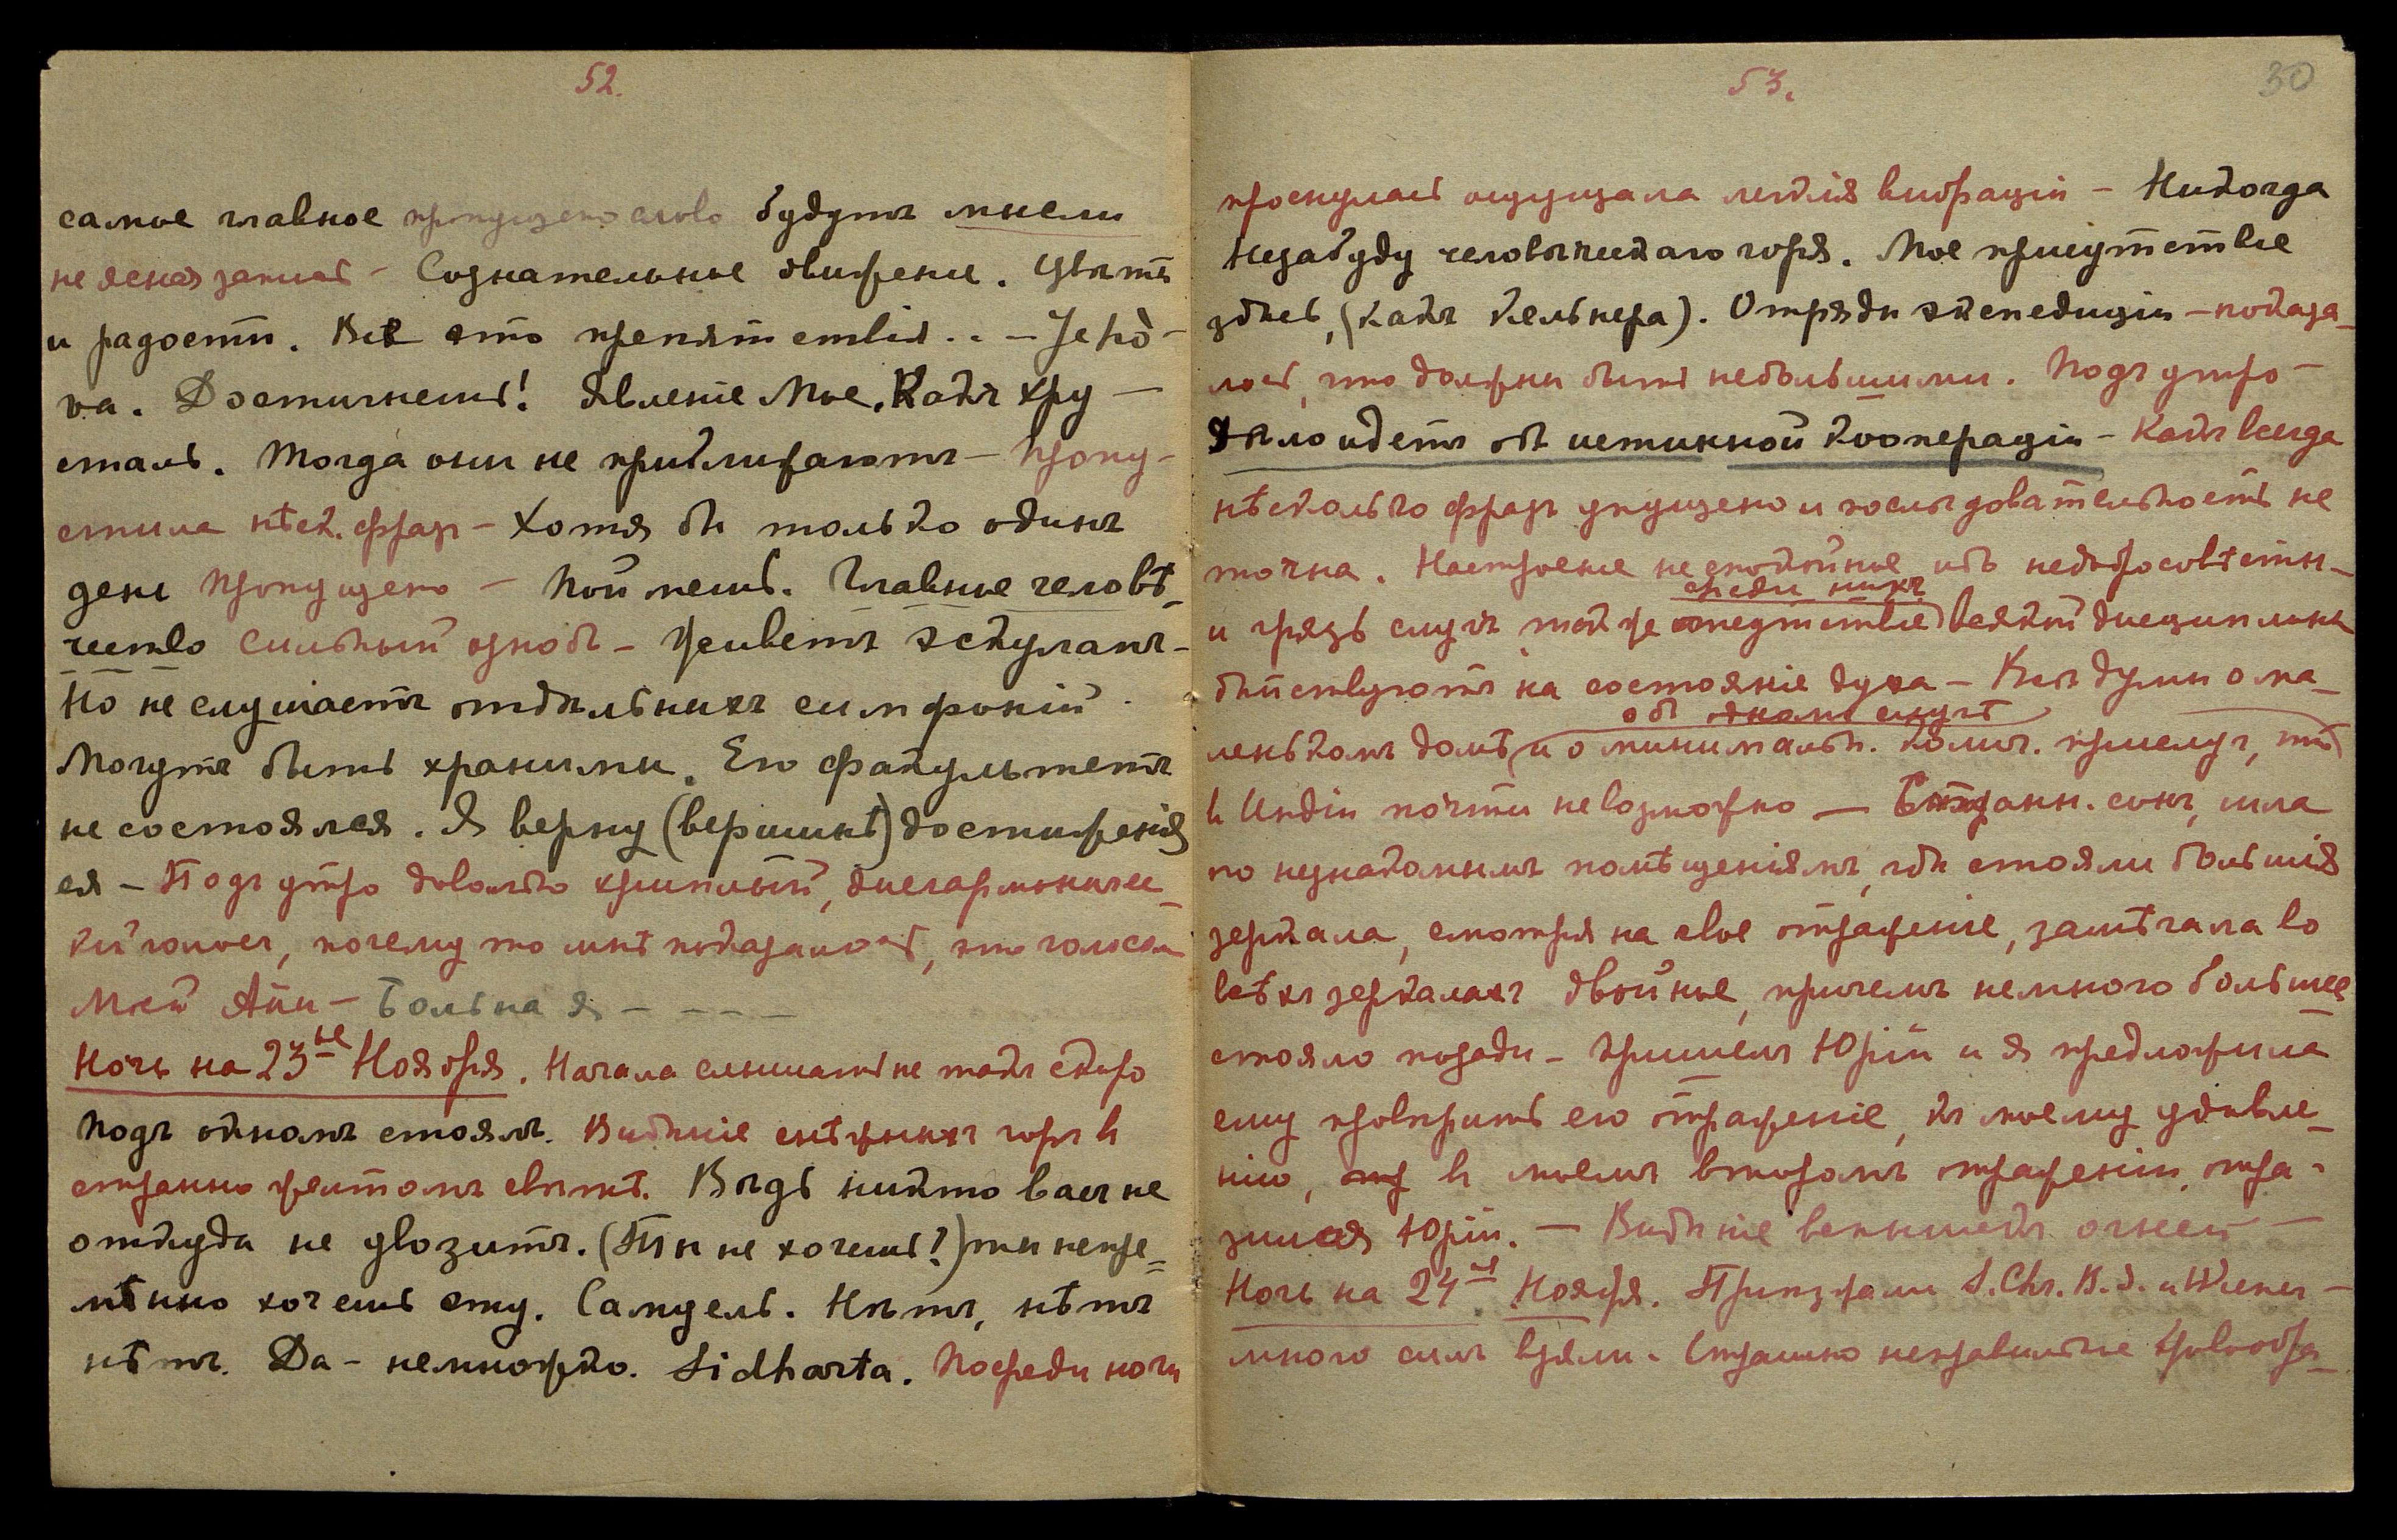 52.
самое главное пропущено слово будутъ мысли
не ясная запись – Сознательные движени. Цвѣты
и радости. Всѣ это препятствія .. – Jeho-
va. Достигнешь! Явленіе Мое. Какъ хру-
сталь. Тогда они не приближаютъ – Пропу-
стила нѣск. фраз – Хотя бы только одинъ
день пропущено – Поймешь. Главное человѣ-
чество сильный ознобъ – Усиветъ эскулапъ –
Но не слушаетъ отдѣльныхъ симфоній.
Могутъ быть хранимы. Его факультетъ
не состоялся. Я верну (вершинѣ) достиженія
ея – Подъ утро довольно хриплый, дисгармоничес-
кій голосъ, почему то мнѣ показалось, что голосъ
Моей Ани – Больна я – – – –
Ночь на 23ье Ноября. Начала слышать не такъ скоро
Подъ окномъ стоялъ. Видѣніе снѣжныхъ горъ въ
странно желтомъ свѣтѣ. Вѣдь никто васъ не
откуда не увозитъ. (Ты не хочешь!) ты непре-
мѣнно хочешь ему. Самуель. Нѣтъ, нѣтъ
нѣтъ. Да – немножко. Sidharta. Посреди ночи
53.
30
проснулась ощущала легкія вибраціи – Никогда
Незабуду человѣческаго горя. Мое присутствіе
здѣсь, (какъ кельнера). Отряды экспедиціи – показа-
лось, что должны быть небольшими. Подъ утро –
Дѣло идетъ объ истинной коопераціи – Какъ всегда
нѣсколько фразъ упущено и последовательность не
точна. Настроеніе неспокойное, объ недобросовѣстн-
среди нихъ
и грязь слугъ, также отсутствіе всякой дисциплины
дѣйствуютъ на состояніе духа – Всѣ думы о ма-
объ одномъ слугѣ
ленькомъ домѣ, и о минимальн. колич. прислуг, что
въ Индіи почти невозможно – Странн. сонъ, шла
по незнакомымъ помѣщеніямъ, гдѣ стояли большія
зеркала, смотря на свое отраженіе, замѣчала во
всѣхъ зеркалахъ двойное, причемъ немного большее
стояло позади – пришелъ Юрій и я предложила
ему проверить его отраженіе, къ моему удивле-
нію, въ моемъ второмъ отраженіи, отра-
зился Юрій. – Видѣніе вспышекъ огней –
Ночь на 24ья Ноября. Призраки J. Chr. В. J. и
много силъ взяли. Страшно неправильное кровообра-